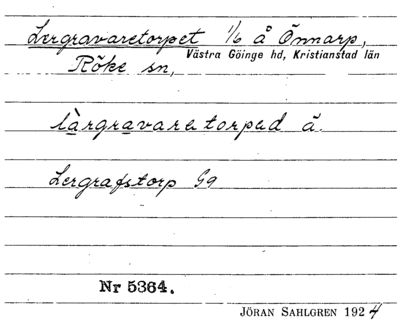 Lergravaretorpet 1/6 å Önnarp,
Västra Göinge hd, Kristianstad län
Röke sn,
làrgravaretorpad ä.
Lergrafstorp Gg
Nr 5364.
JÖRAN SAHLGREN 1924